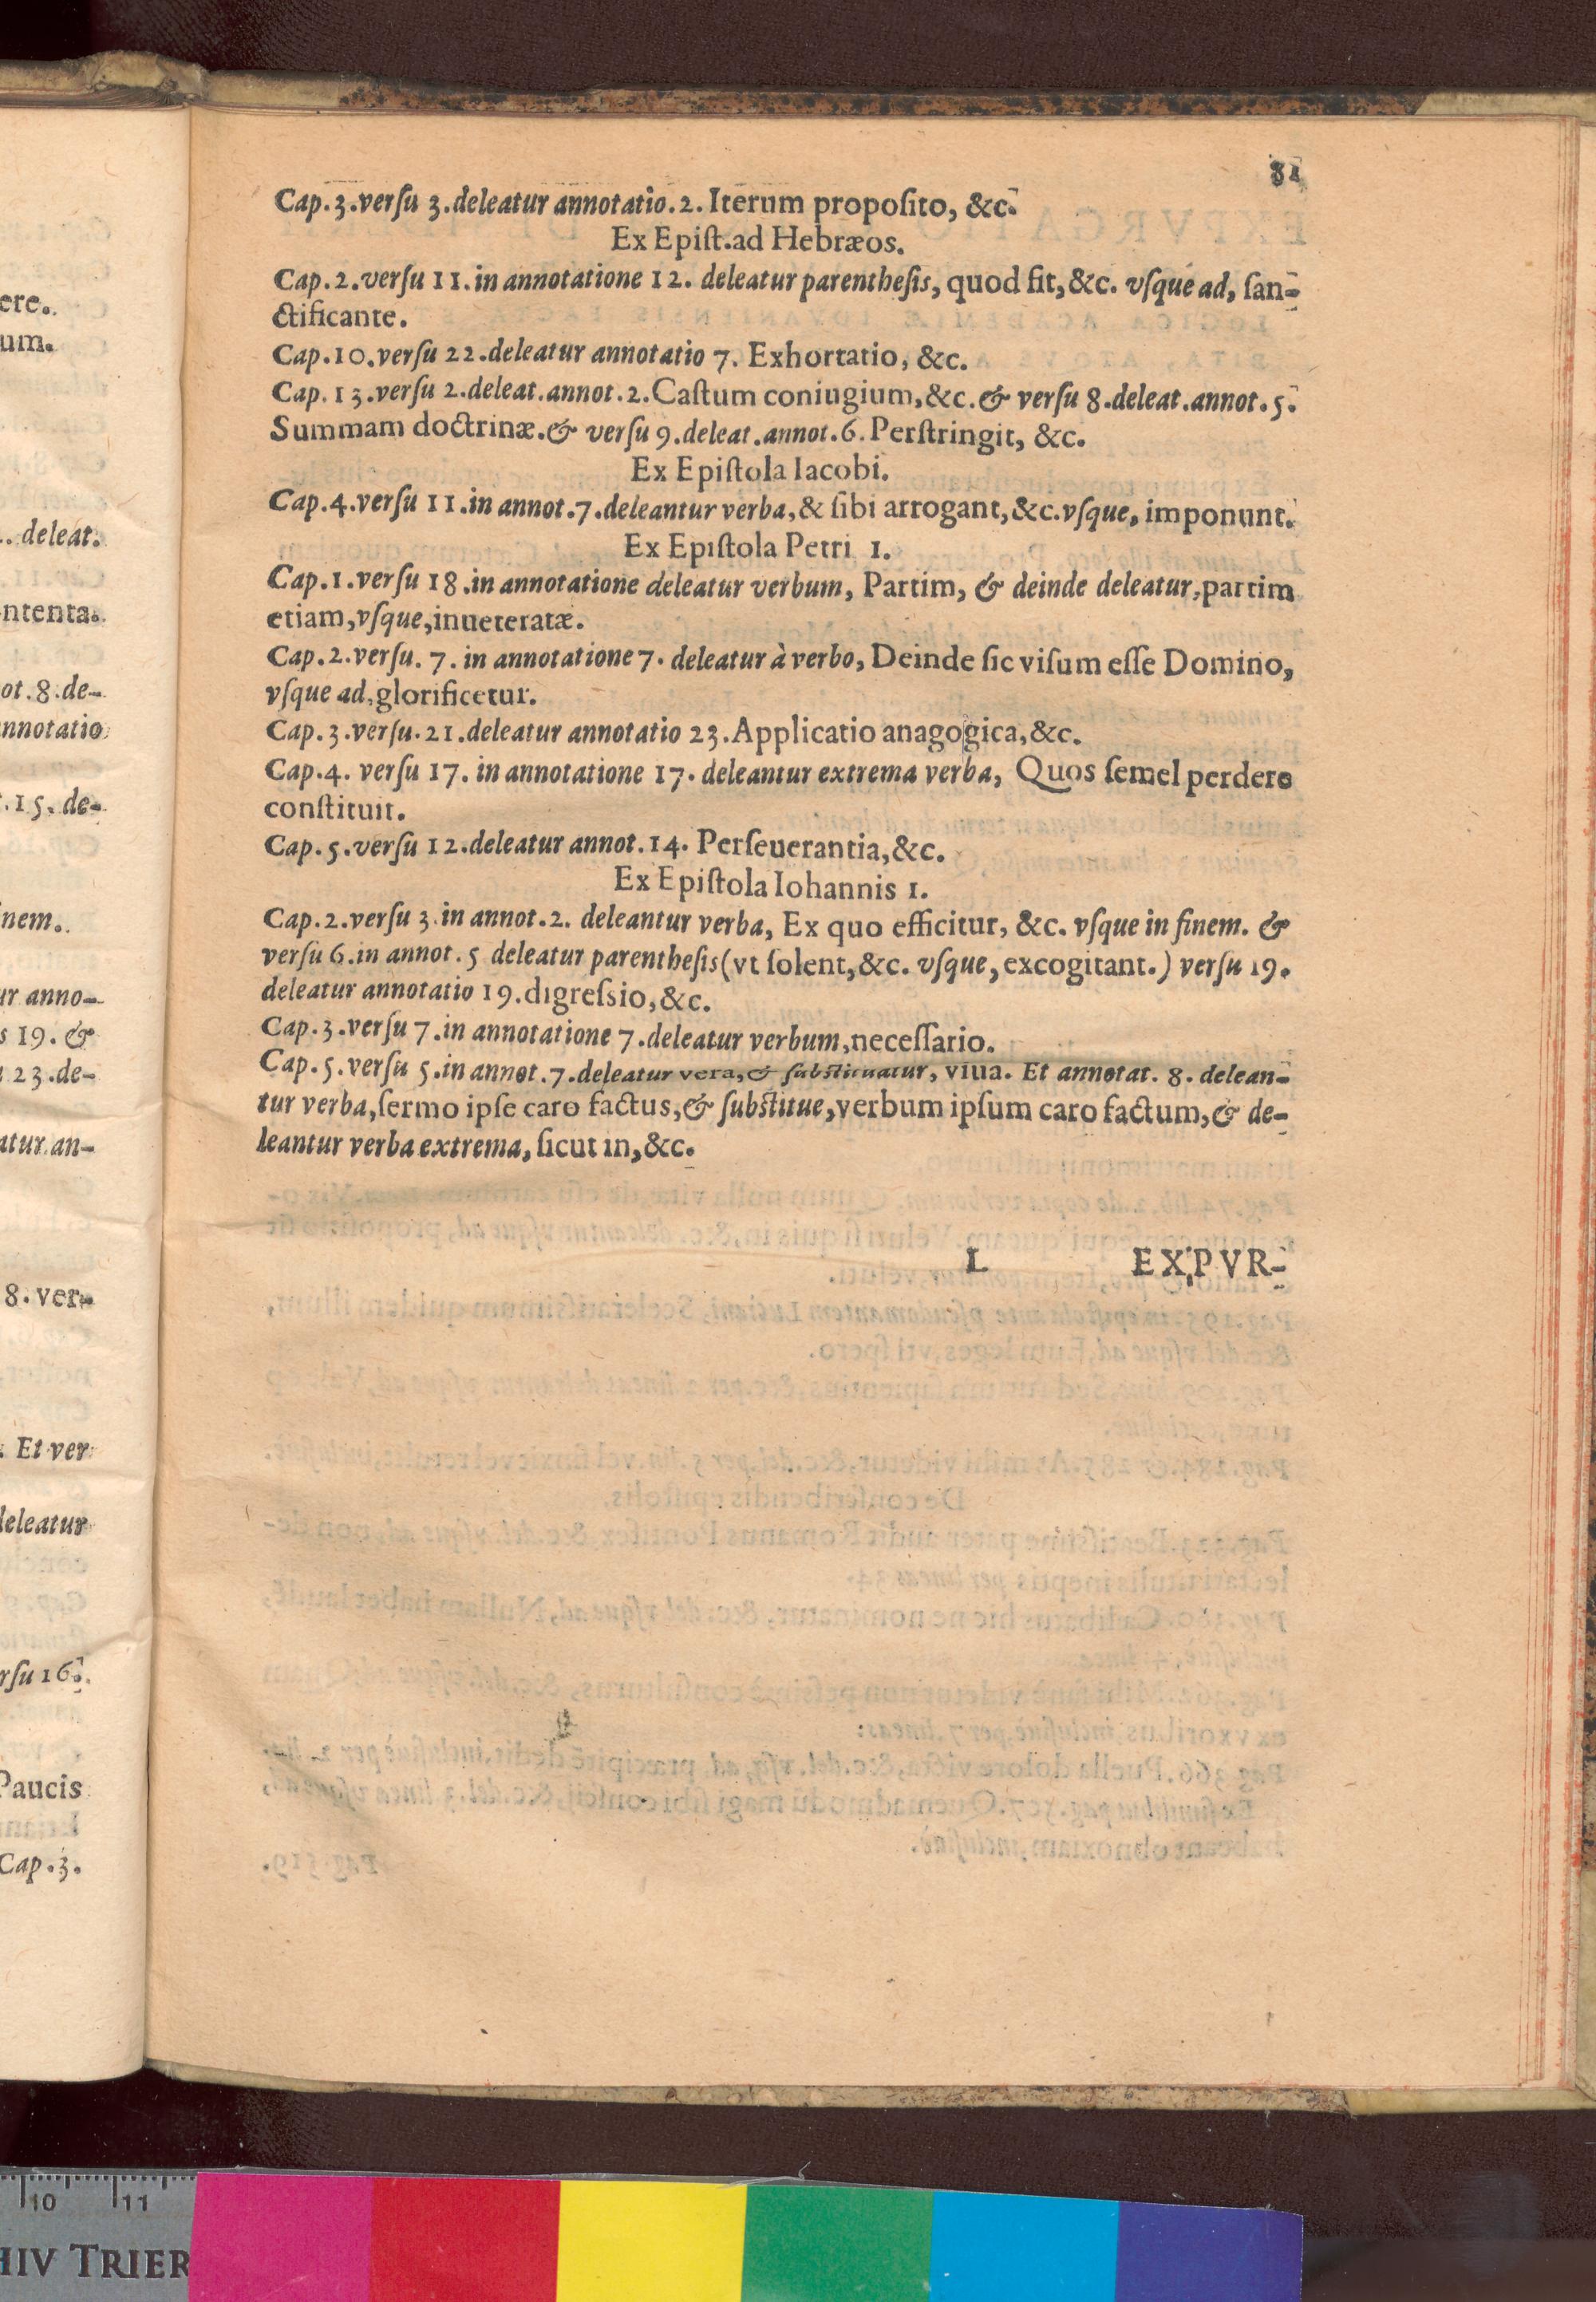 81
Cap.3.verſu 3.deleatur annotatio.2. Iterum propoſito, &c.
Ex Epiſt.ad Hebræos.
Cap.2.verſu 11.in annotatione 12. deleatur parentheſis, quod fit,&c. vſque ad, ſan-
ctificante.
Cap.10.verſu 22.deleatur annotatio 7. Exhortatio, &c.
Cap.13.verſu 2.deleat.annot.2.Caſtum coniugium,&c.& verſu 8.deleat.annot.5.
Summam doctrinæ.& verſu 9.deleat.annot.6.Perſtringit, &c.
Ex Epiſtola Iacobi.
Cap.4.verſu 11.in annot.7.deleantur verba,& ſibi arrogant,&c.vſque, imponunt.
Ex Epiſtola Petri 1.
Cap.1.verſu 18.in annotatione deleatur verbum, Partim, & deinde deleatur,partim
etiam,vſque,inueteratæ.
Cap.2.verſu. 7. in annotatione 7. deleatur à verbo, Deinde ſic viſum eſſe Domino,
vſque ad,glorificetur.
Cap.3.verſu.21.deleatur annotatio 23.Applicatio anagogica,&c.
Cap.4. verſu 17. in annotatione 17. deleantur extrema verba, Quos ſemel perdere
conſtituit.
Cap.5.verſu 12.deleatur annot.14. Perſeuerantia,&c.
Ex Epiſtola Iohannis 1.
Cap.2.verſu 3.in annot.2. deleantur verba, Ex quo efficitur, &c. vſque in finem. &
verſu 6.in annot.5 deleatur parentheſis(vt ſolent,&c. vſque,excogitant.) verſu 19.
deleatur annotatio 19.digreſsio,&c.
Cap.3.verſu 7.in annotatione 7.deleatur verbum,neceſſario.
Cap.5.verſu 5.in annot.7.deleatur vera,& ſubſtituatur, viua. Et annotat. 8. delean-
tur verba,ſermo ipſe caro factus,& ſubſtitue,verbum ipſum caro factum,& de-
leantur verba extrema, ſicut in,&c.
L EXPVR-
ere.
um.
deleat.
ntenta.
ot.8.de-
nnotatio
.15. de-
nem.
ur anno-
19. &
23.de-
atur an-
8. ver-
Et ver
deleatur
rſu 16.
Paucis
Cap.3.
10 11
HIV TRIER